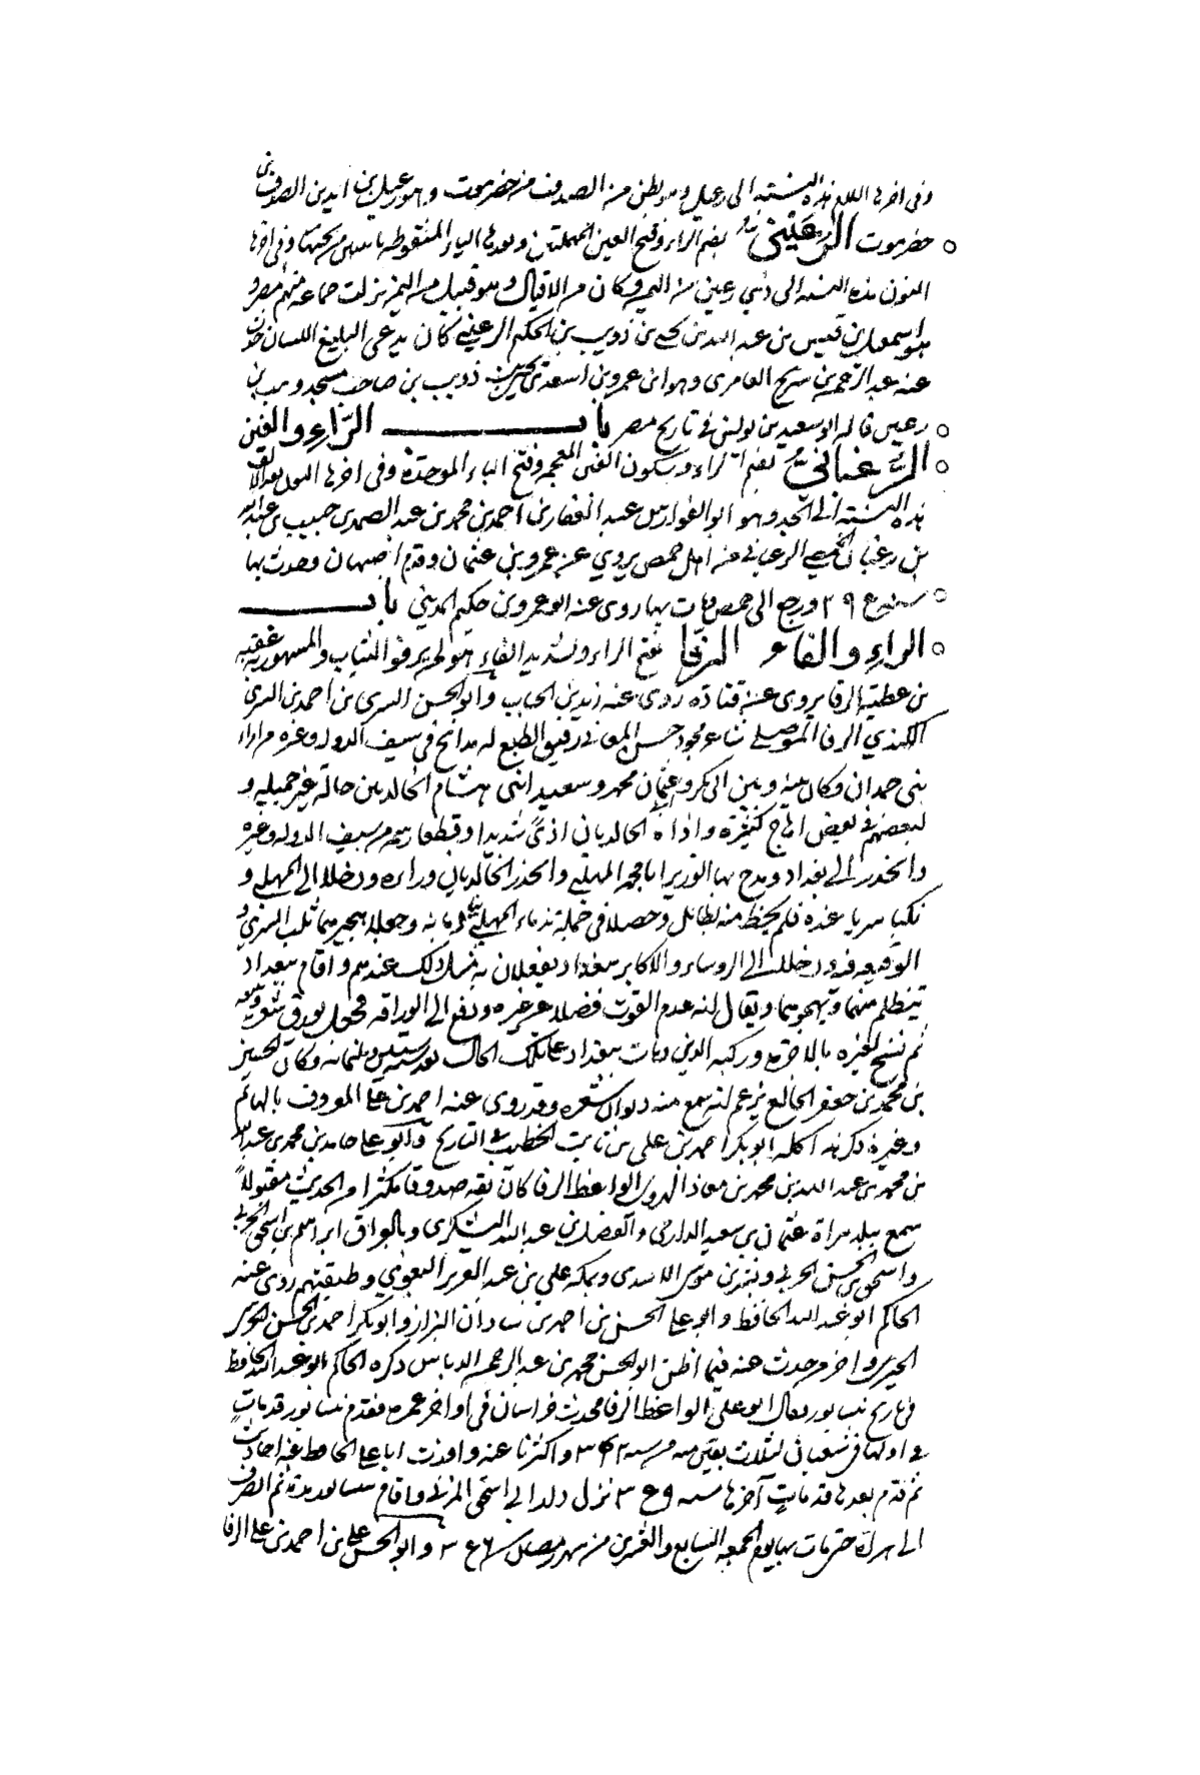 وفى اخرها اللام هذه النسبة الى رعيل وهو بطن من الصدف من حضرموت وهو رعيل بن ايدين الصدف بن
حضرموت الرُّعَيْني بضم الراء وفتح العين المهملتين وبعدها الياء المنقوطة باثنتين من تحتها وفى اخرها
النون هذه النسبة الى ذي رعين من اليمن وكان من الاقيال وهو قبيل من اليمن نزلت جماعة منهم مصر و
هو اسمعيل بن قيس بن عبد الله بن بن ذويب بن الحكم الرعيني كان يدعى البليغ اللسان حدث
عنه عبد الرحمن بن شريح العامرى وهو ابن عمرو بن اسعد بن ذويب بن صاحب مسجد بن
رعين قاله ابو سعيد بن يونس فى تاريخ مصر باب الرّاء والغين
الرُّغْبَاني بضم الراء وسكون الغين المعجمة وفتح الباء الموحدة وفى اخرها النون بعد الالف
هذه النسبة الى الجد وهو ابو الفوارس عبد الغفار بن احمد بن محمد بن عبد الصمد بن حبيب بن عبد الله
بن رغبان الحمصي الرغباني من اهل حمص يروي عن عمرو بن عثمان وقدم اصبهان وحدث بها
سنة ٢٩٤ ورجع الى حمص ومات بها روى عنه ابو عمرو بن حكيم المديني باب
الراء والفاء الرفّا بفتح الراء وتشديد الفاء هو لمن يرفو الثياب والمشهور به عقبه
بن عطية الرفا يروى عن قتادة روى عنه زيد بن الحباب وابو الحسن السري بن احمد بن السري
الكندي الرفا الموصلي شاعر مجود حسن المعاني رقيق الطبع له مدائح فى سيف الدولة وغيره من امراء
بنى حمدان وكان بينه وبين ابى بكر وعثمان محمد وسعيد ابنى هشام الخالديين حالة غير جميلة و
لبعضهم فى بعض اهاج كثيرة واذاه الخالديان اذىً شديدا وقطعا رسمه من سيف الدولة وغيره
وانحدر الى بغداد ومدح بها الوزير ابا محمد المهلبي وانحدر الخالديان وراءه ودخلا الى المهلبي و
ثلبا سريا عنده فلم يحظ منه بطائل وحصلا فى جملة ندماء المهلبي وجعلا هجيراهما ثلب السري و
الوقيعة فيه ودخلا الى الروساء والاكابر ببغداد يفعلان به مثل ذلك عندهم واقام ببغداد
يتظلم منهما ويهجوهما ويقال انه عدم القوت فضلا عن غيره ودفع الى الوراقة فجعل يورق شعره ويبيعه
ثم نسخ لغيره بالاجرة وركبه الدين ومات ببغداد على تلك الحال بعد ستين وثلثمائة وكان الحسين
بن محمد بن جعفر الخالع يزعم انه سمع منه ديوان شعره وقد روى عنه احمد بن على المعروف بالهائم
وغيره ذكر هذا كله ابو بكر احمد بن على بن ثابت الخطيب في التاريخ وابو على حامد بن محمد بن عبد الله
بن محمد بن عبد الله بن محمد بن معاذ الهروي الواعظ الرفا كان ثقه صدوقا مكثرا من الحديث مقبولاً
سمع ببلده هراة عثمان بن سعيد الدارمي والفضل بن عبد الله اليشكرى وبالعراق ابراهيم بن اسحق الحربي
واسحق بن الحسن الحربي وبشر بن موسى الاسدى وبمكه علي بن عبد العزيز البغوي وطبقتهم روى عنه
الحاكم ابو عبد الله الحافظ وابو على الحسن بن احمد بن شاذان البزاز وابو بكر احمد بن الحسن الحرشي
الحيري واخر من حدث عنه فيما اظن ابو الحسن محمد بن عبد الرحمن الدباس ذكره الحاكم ابو عبد الله الحافظ
فى تاريخ نيسابور فقال ابو على الواعظ الرفا محدث خراسان فى اواخر عمره فقدم نيسابور قدمات
اولها فى شعبان لثلاث بقين منه من سنة واكثرنا عنه وافدت ابا على الحافظ عنه احاديث
ثم قدم بعدها قدمات آخرها سنة نزل دار ابي اسحق المزني واقام بنيسابور مدة ثم انصرف
الى هراة حتى مات بها يوم الجمعة السابع والعشرين من شهر رمضان سنة وابو الحسن على بن احمد بن على الرفا